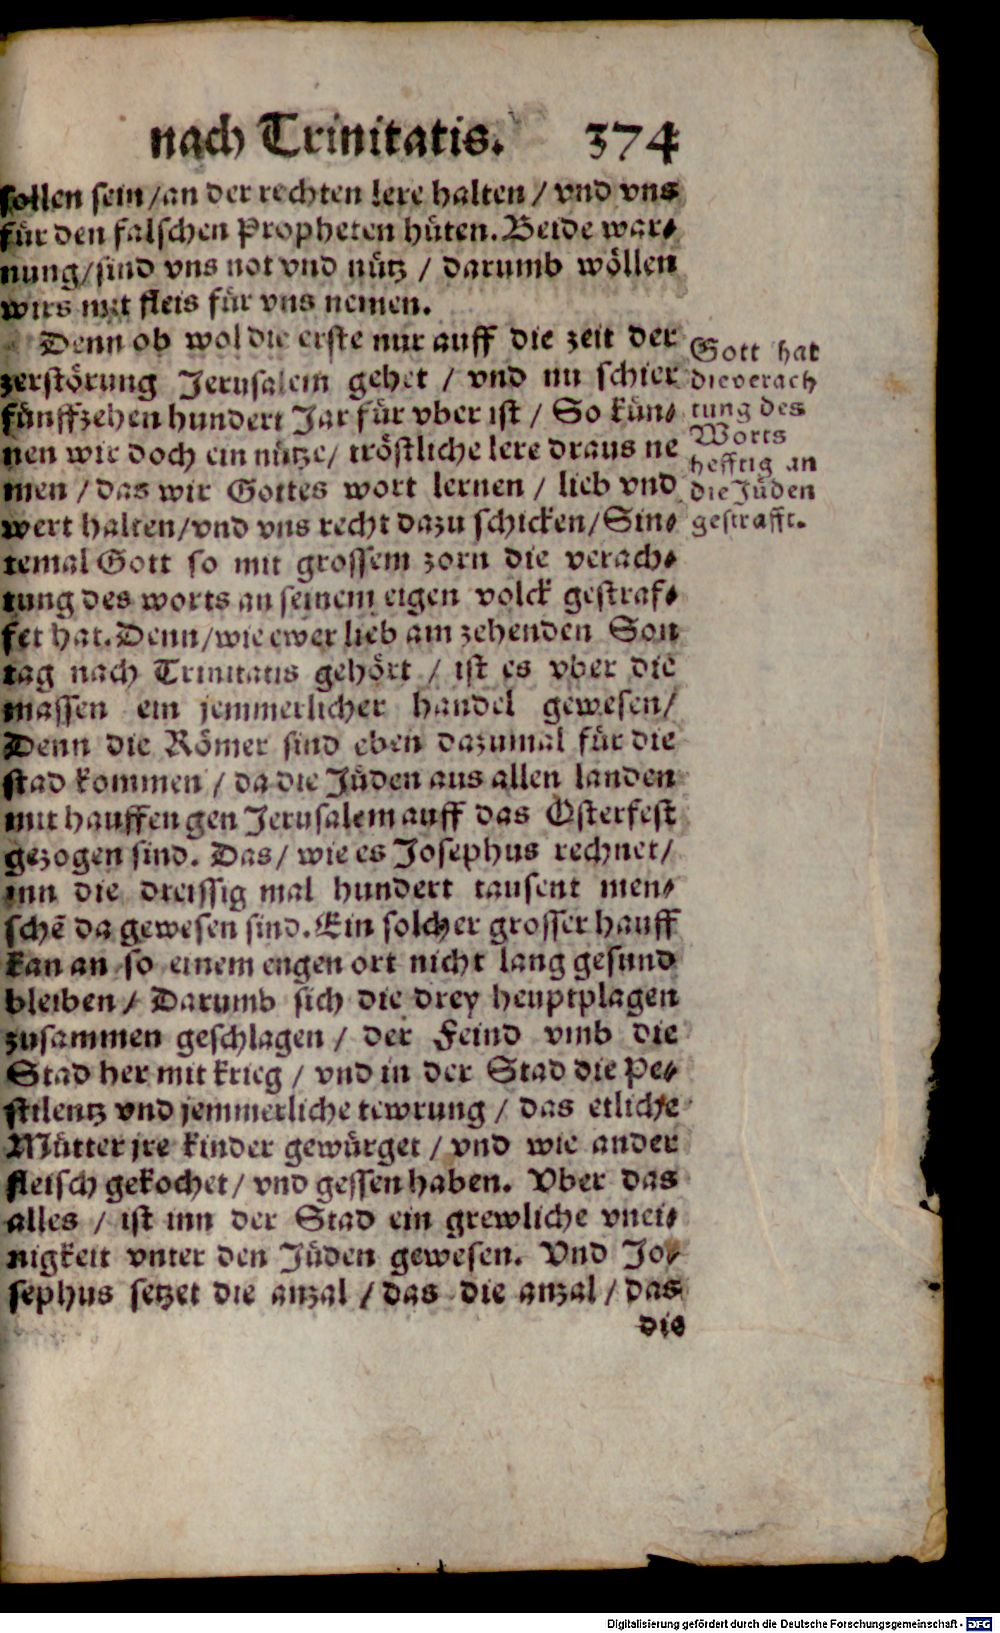 nach Trinitatis. 374
sollen sein / an der rechten lere halten / vnd vns
für den falschen Propheten hüten. Beide war-
nung / sind vns not vnd nütz / darumb wöllen
wirs mit fleis für vns nemen.
Denn ob wol die erste nur auff die zeit der
zerstörung Jerusalem gehet / vnd nu schier
fünffzehen hundert Jar für vber ist / So kün-
nen wir doch ein nütze / tröstliche lere draus ne
men / das wir Gottes wort lernen / lieb vnd
wert halten / vnd vns recht dazu schicken / Sin-
temal Gott so mit grossem zorn die verach-
tung des worts an seinem eigen volck gestraf-
fet hat. Denn / wie ewer lieb am zehenden Son
tag nach Trinitatis gehört / ist es vber die
massen ein jemmerlicher handel gewesen /
Denn die Römer sind eben dazumal für die
stad kommen / da die Jüden aus allen landen
mit hauffen gen Jerusalem auff das Osterfest
gezogen sind. Das / wie es Josephus rechnet /
inn die dreissig mal hundert tausent men-
schē da gewesen sind. Ein solcher grosser hauff
kan an so einem engen ort nicht lang gesund
bleiben / Darumb sich die drey heuptplagen
zusammen geschlagen / der Feind vmb die
Stad her mit krieg / vnd in der Stad die Pe-
stilentz vnd jemmerliche tewrung / das etliche
Mütter jre kinder gewürget / vnd wie ander
fleisch gekochet / vnd gessen haben. Vber das
alles / ist inn der Stad ein grewliche vnei-
nigkeit vnter den Jüden gewesen. Vnd Jo-
sephus setzet die anzal / das die anzal / das
die
Gott hat
die verach
tung des
Worts
hefftig an
die Jüden
gestrafft.
Digitalisierung gefördert durch die Deutsche Forschungsgemeinschaft - DFG